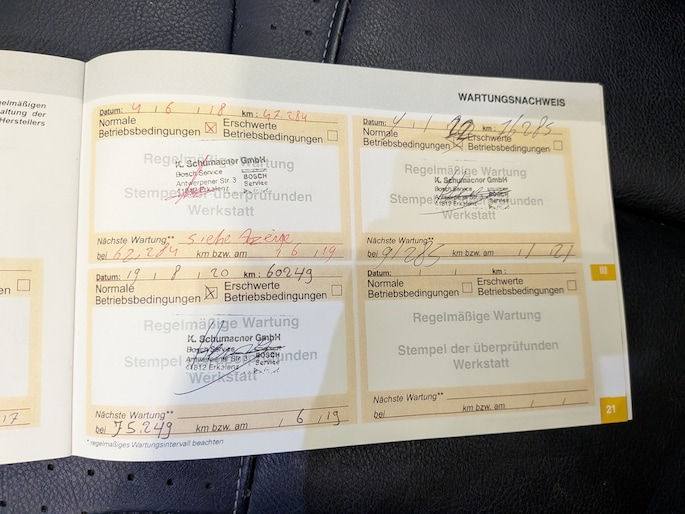 elmäßigen
altung der
Herstellers
WARTUNGSNACHWEIS
Datum: 4 , 6 , 18 km: 47.284
Normale Betriebsbedingungen ☒ Erschwerte Betriebsbedingungen ☐
Regelmäßige Wartung
K. Schumacher GmbH
Bosch Service
Antwerpener Str. 3
41812 Erkelenz
BOSCH
Service
Stempel der überprüfenden
Werkstatt
Nächste Wartung** siehe Anzeige
bei 62.284 km bzw. am , 6 , 19
Datum: 4 , 1 , 22 km: 76285
Normale Betriebsbedingungen ☒ Erschwerte Betriebsbedingungen ☐
Regelmäßige Wartung
K. Schumacher GmbH
Bosch Service
Antwerpener Str. 3
41812 Erkelenz
BOSCH
Service
Stempel der überprüfenden
Werkstatt
Nächste Wartung**
bei 91285 km bzw. am
Datum: 19 , 8 , 20 km: 60249
Normale Betriebsbedingungen ☒ Erschwerte Betriebsbedingungen ☐
Regelmäßige Wartung
K. Schumacher GmbH
Bosch Service
Antwerpener Str. 3
41812 Erkelenz
BOSCH
Service
Stempel der überprüfenden
Werkstatt
Nächste Wartung**
bei 75.249 km bzw. am , 6 , 19
Datum: , , km:
Normale Betriebsbedingungen ☐ Erschwerte Betriebsbedingungen ☐
Regelmäßige Wartung
Stempel der überprüfenden
Werkstatt
Nächste Wartung**
bei km bzw. am , ,
en ☐
17
* regelmäßiges Wartungsintervall beachten
III
21